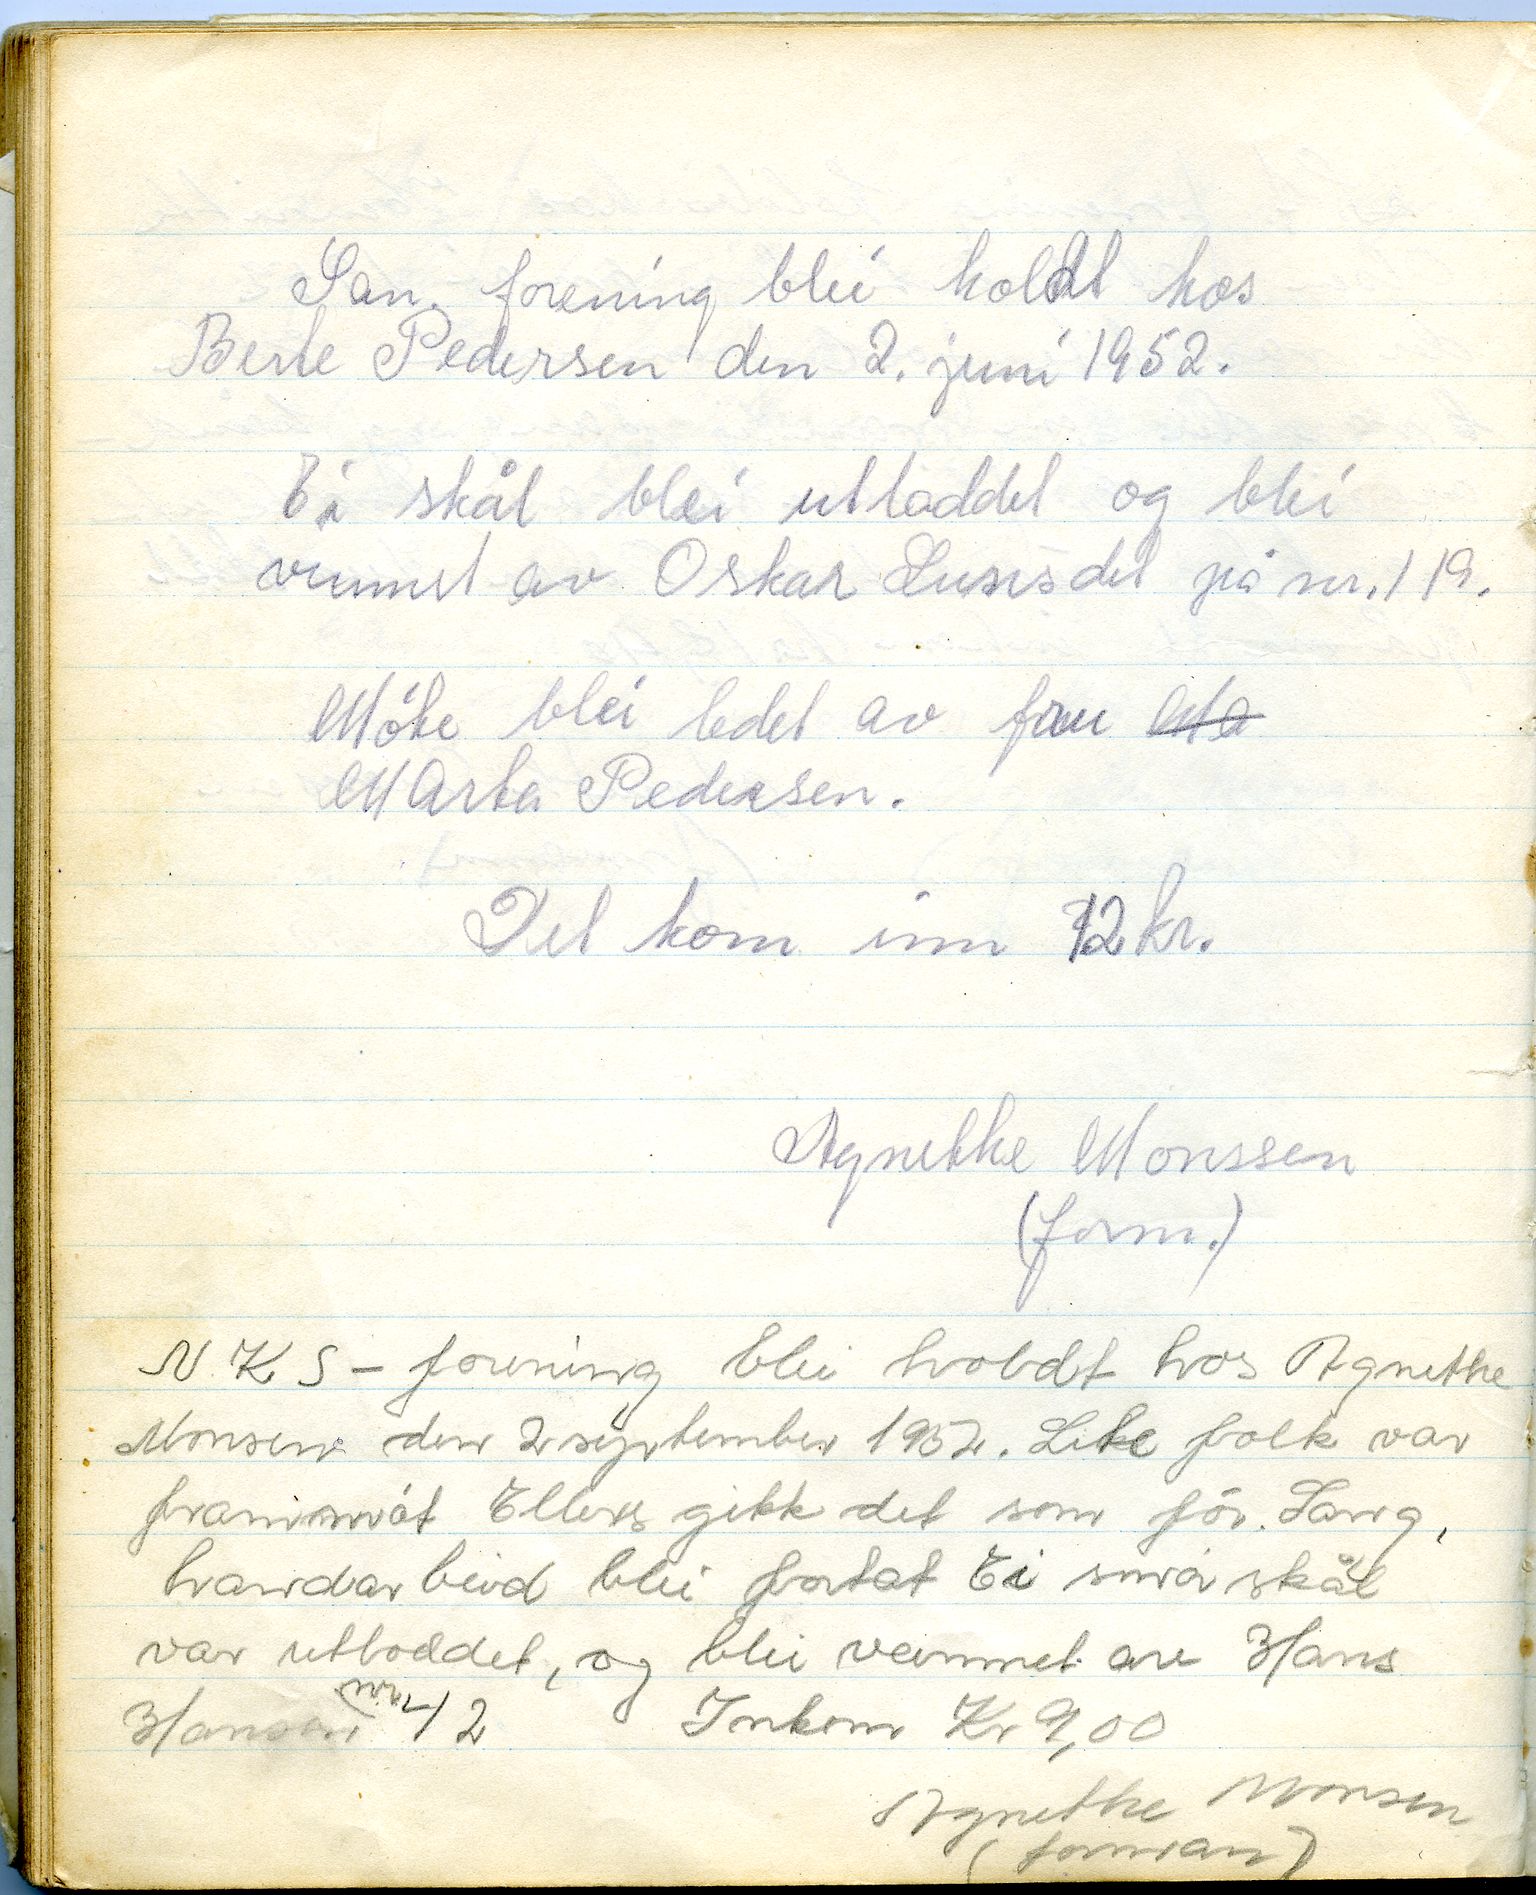 San. forening blei holdt hos
Berte Pedersen den 2. juni 1952.
Ei skål blei utloddet og blei
vunnet av Oskar på nr. 119.
Møte blei ledet av fru
Marta Pedersen.
Det kom inn 12 kr.
Agnethe Monssen
(form.)
N.K.S - forening blei hvobdt hvos Agnethe
Monsen den 2 september 1952. Like folk var
frammøt Ellers gikk det som før. Lang,
handarbeid blei fortat Ei små skål
var utloddet, og blei vunnet av Hans
Hansen nr 42 Inkom Kr 9,00
Agnethe Monsen
(formann)